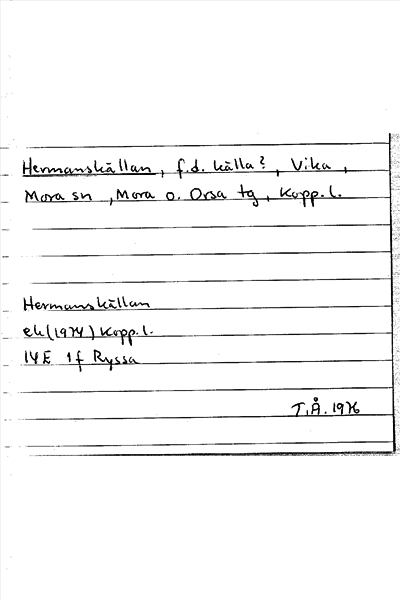 Hermanskällan, f.d. källa?, Vika,
Mora sn, Mora o. Orsa tg, Kopp.l.
Hermanskällan
ek(1974) Kopp.l.
14E 1f Ryssa
T.Å. 1976